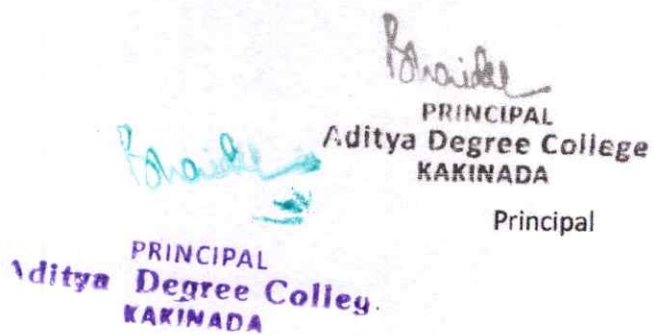 PRINCIPAL
Aditya Degree College
KAKINADA
Principal
PRINCIPAL
Aditya Degree Colleg.
KAKINADA